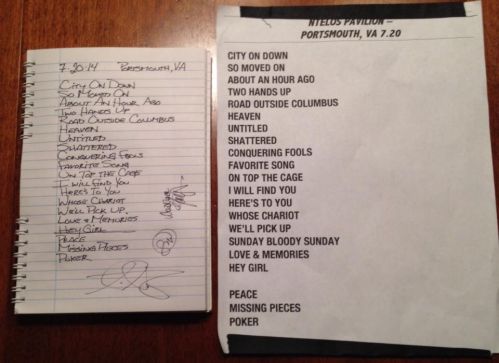 7.20.14 PORTSMOUTH, VA
CITY ON DOWN
SO MOVED ON
ABOUT AN HOUR AGO
TWO HANDS UP
ROAD OUTSIDE COLUMBUS
HEAVEN
UNTITLED
SHATTERED
CONQUERING FOOLS
FAVORITE SONG
ON TOP THE CAGE
I WILL FIND YOU
HERE'S TO YOU
WHOSE CHARIOT
WE'LL PICK UP
LOVE & MEMORIES
HEY GIRL
PEACE
MISSING PIECES
POKER
NTELOS PAVILION –
PORTSMOUTH, VA 7.20
CITY ON DOWN
SO MOVED ON
ABOUT AN HOUR AGO
TWO HANDS UP
ROAD OUTSIDE COLUMBUS
HEAVEN
UNTITLED
SHATTERED
CONQUERING FOOLS
FAVORITE SONG
ON TOP THE CAGE
I WILL FIND YOU
HERE'S TO YOU
WHOSE CHARIOT
WE'LL PICK UP
SUNDAY BLOODY SUNDAY
LOVE & MEMORIES
HEY GIRL
PEACE
MISSING PIECES
POKER